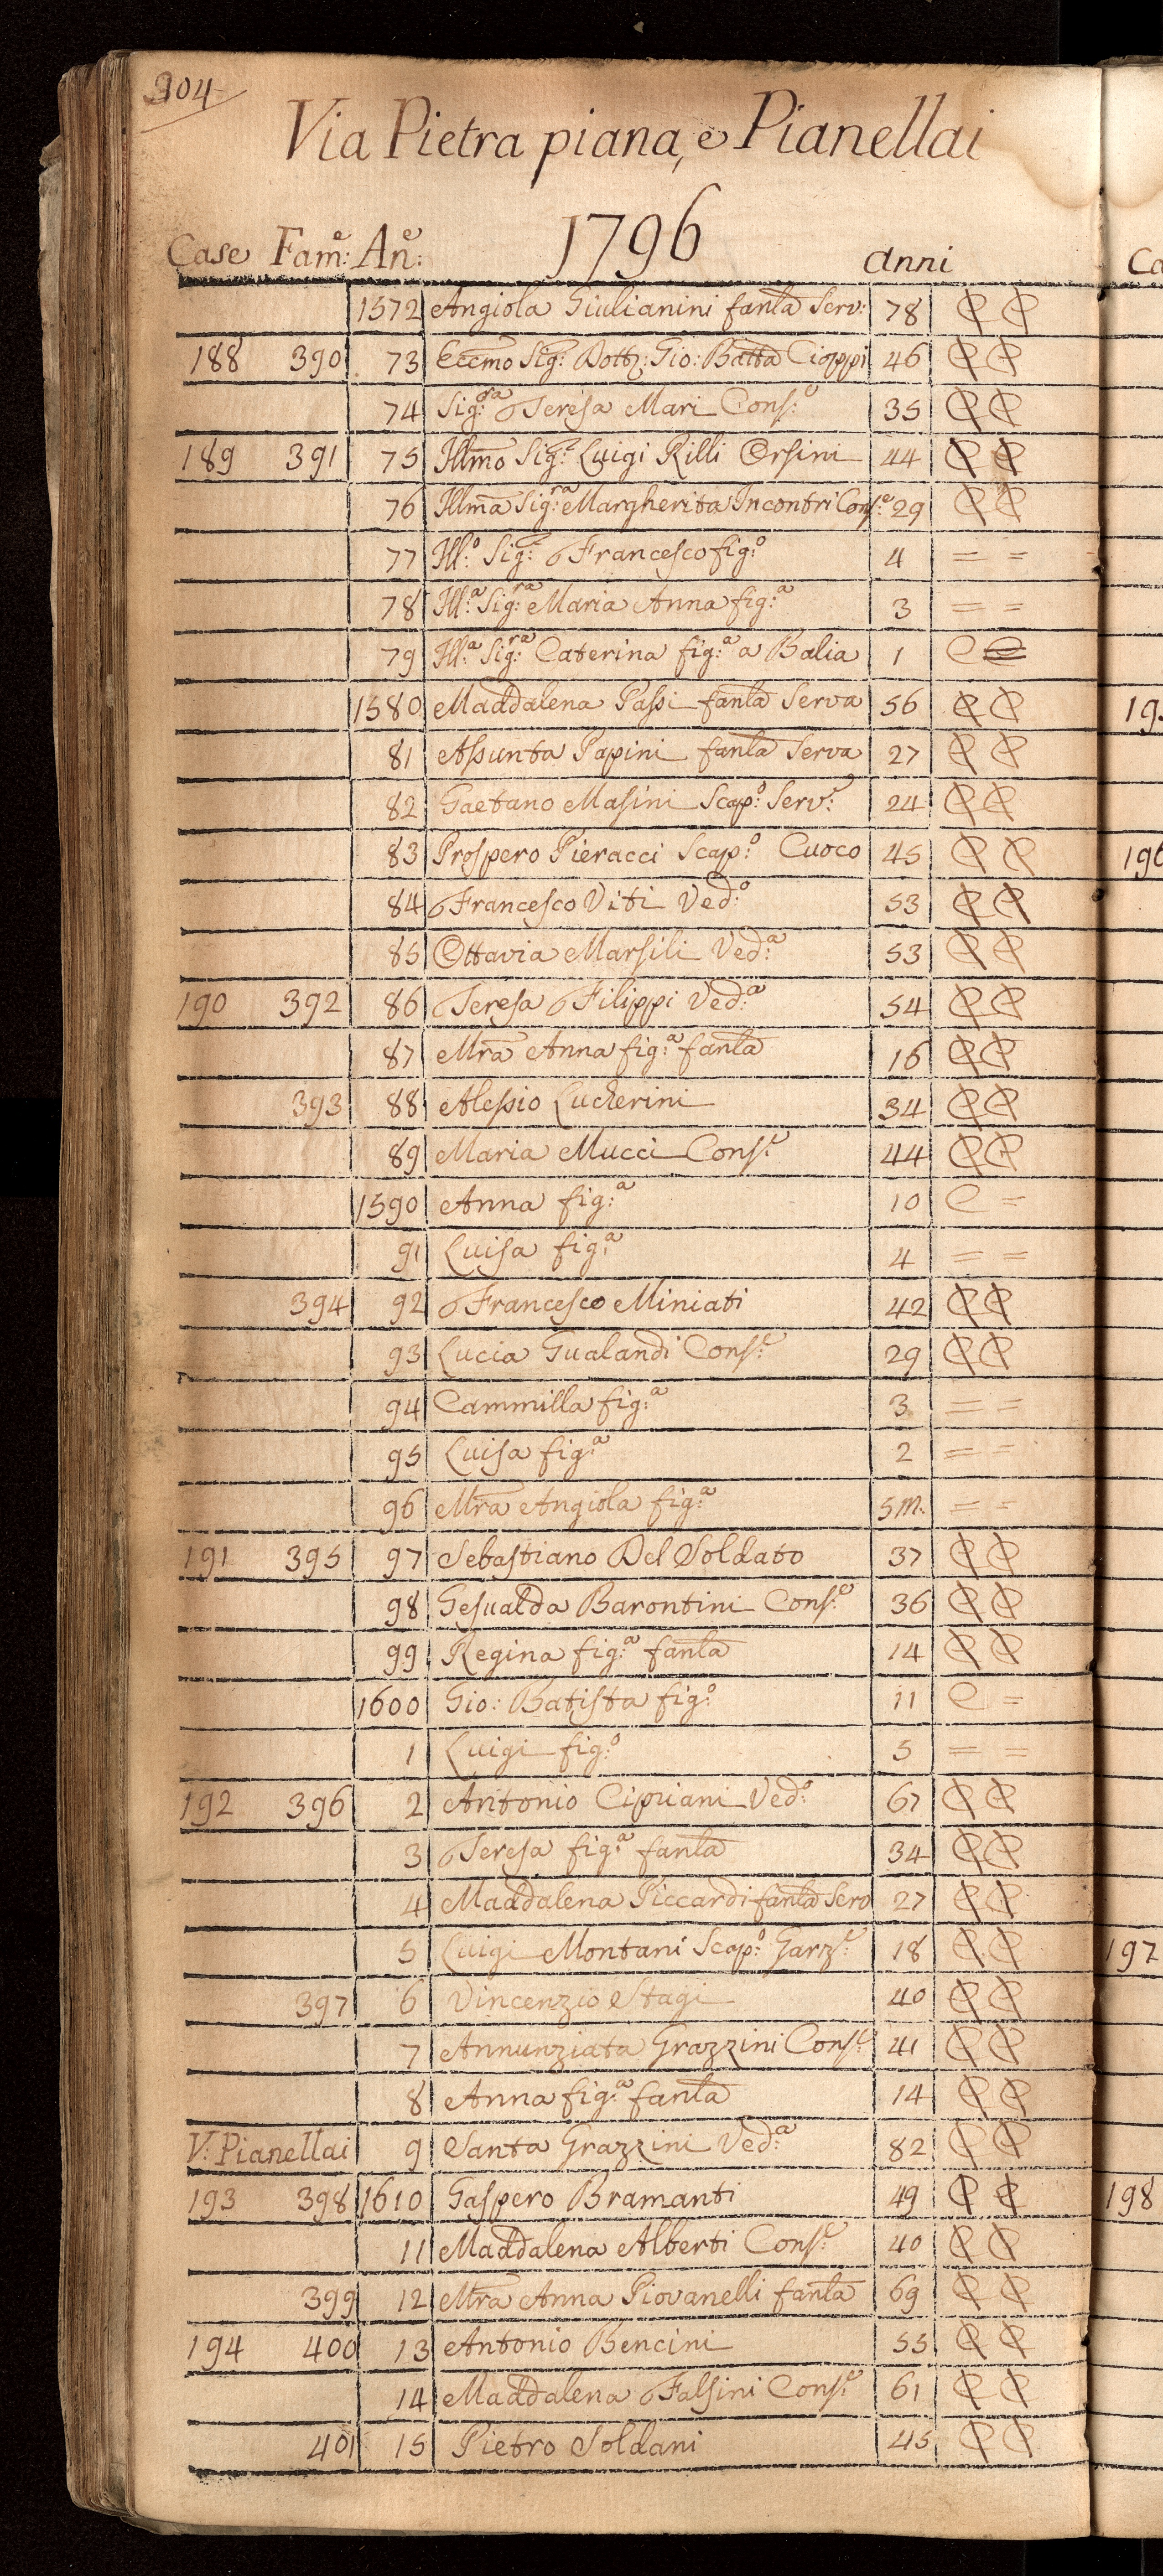 304
Via Pietra piana, e Pianellai
Case Fam:e An:e 1796 anni
1572 Angiola Giulianini fanla Serv: 78
188 390 73 Eccmo Sig: Dott: Gio: Batta Cioppi 46
74 Sig:ra Teresa Mari Cons:e 35
189 391 75 Illmo Sig:e Luigi Rilli Orsini 44
76 Illma Sig:ra Margherita Incontri Cons:e 29
77 Ill:o Sig:e Francesco fig:o 4 = =
78 Ill:a Sig:ra Maria Anna fig:a 3 = =
79 Ill:a Sig:ra Caterina fig:a a Balia 1 C
1580 Maddalena Passi fanla Serva 56
81 Assunta Papini fanla Serva 27
82 Gaetano Masini Scap:o Serv:e 24
83 Prospero Pieracci Scap:o Cuoco 45
84 Francesco Viti Ved:o 53
85 Ottavia Marsili Ved:a 53
190 392 86 Teresa Filippi Ved:a 54
87 Mra Anna fig:a fanla 16
393 88 Alessio Lucherini 34
89 Maria Mucci Cons:e 44
1590 Anna fig:a 10 C =
91 Luisa fig:a 4 = =
394 92 Francesco Miniati 42
93 Lucia Gualandi Cons:e 29
94 Cammilla fig:a 3 = =
95 Luisa fig:a 2 = =
96 Mra Angiola fig:a 5 m. = =
191 395 97 Sebastiano Del Soldato 37
98 Gesualda Barontini Cons:e 36
99 Regina fig:a fanla 14
1600 Gio: Batista fig:o 11 C =
1 Luigi fig:o 5 = =
192 396 2 Antonio Cipriani Ved:o 67
3 Teresa fig:a fanla 34
4 Maddalena Piccardi fanla Serv 27
5 Luigi Montani Scap:o Garz:e 18
397 6 Vincenzio Stagi 40
7 Annunziata Grazzini Cons:e 41
8 Anna fig:a fanla 14
V: Pianellai 9 Santa Grazzini Ved:a 82
193 398 1610 Gaspero Bramanti 49
11 Maddalena Alberti Cons:e 40
399 12 Mra Anna Piovanelli fanla 69
194 400 13 Antonio Bencini 55
14 Maddalena Falsini Cons:e 61
401 15 Pietro Soldani 45
197
198